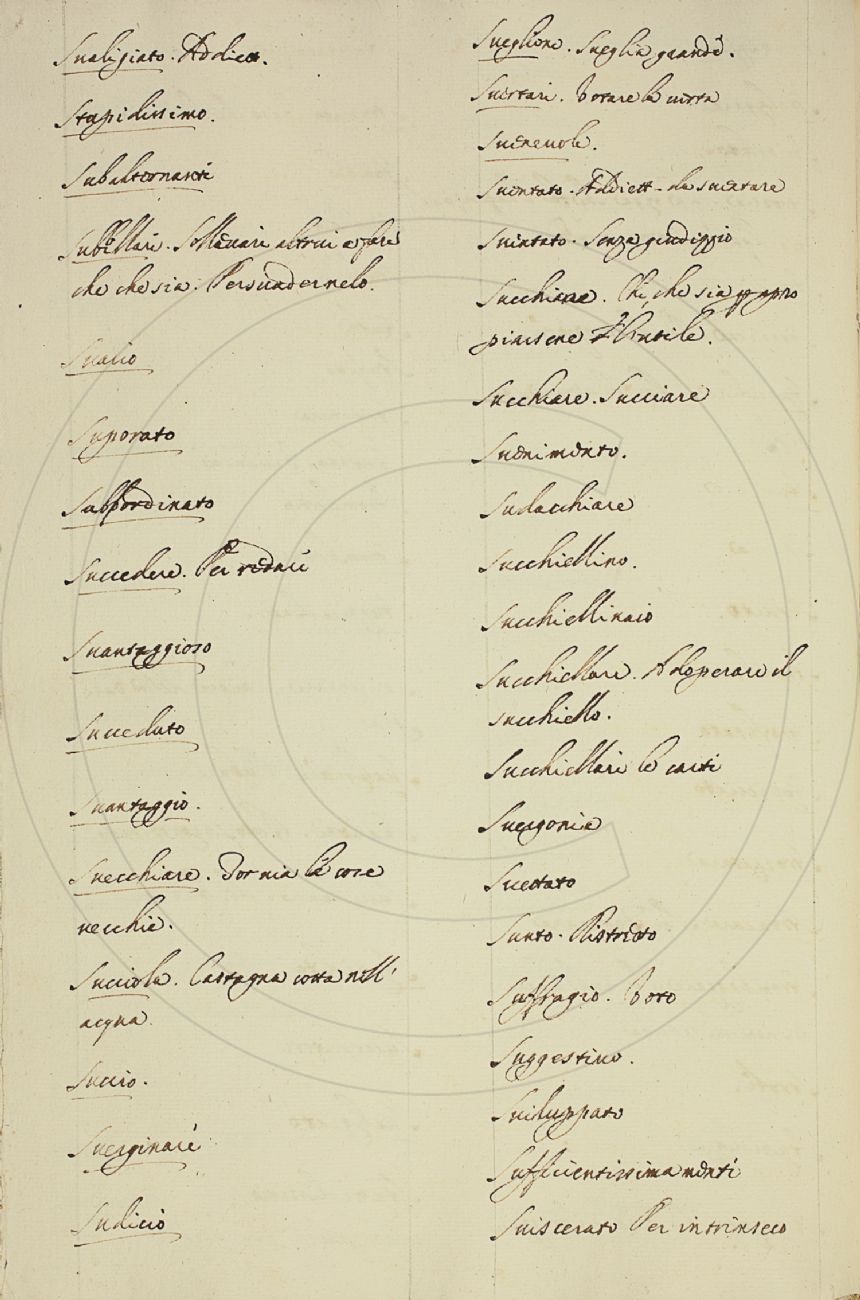 Sualigiato. Addiett.
Stupidissimo.
Subalternanti
Subillare. Sollevare altrui a fare
che che sia. Persuadernelo.
Suario
Suporato
Subbordinato
Succedere. Per
Suantaggioso
Succeduto
Suantaggio.
Suecchiare. Tor via le cose
uecchie.
Succiola. Castagna cotta nell'
acqua
Succio.
Suerginare
Sudicio
Sueglione. Sueglia grande.
Suettare. Votare la
Sueneuole.
Suentato. Addiett. da suentare
Suentato. Senza giudizzio
Succhiare. Che che sia appro
piarsene l'utile.
Succhiare. Succiare
Suenimento.
Sudacchiare
Succhiellino.
Succhiellinaio
Succhiellare. Adoperare il
succhiello.
Succhiellare le carte
Suergonia
Suettato
Sunto. Ristretto
Suffragio. Voto
Suggestiuo.
Suiluppato
Sufficientissimamente
Suiscerato Per intrinseco